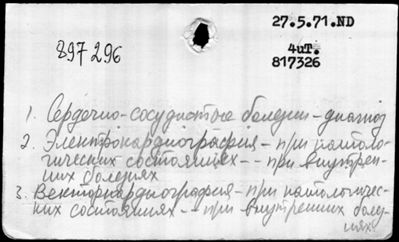 27.5.71.ND
4uT.
817326
897296
1. Сердечно-сосудистые болезни - диагноз
2. Электрокардиография - при патоло-
гических состояниях - - при внутрен-
них болезнях
3. Векторкардиография - при патологичес-
ких состояниях - - при внутренних болез-
нях